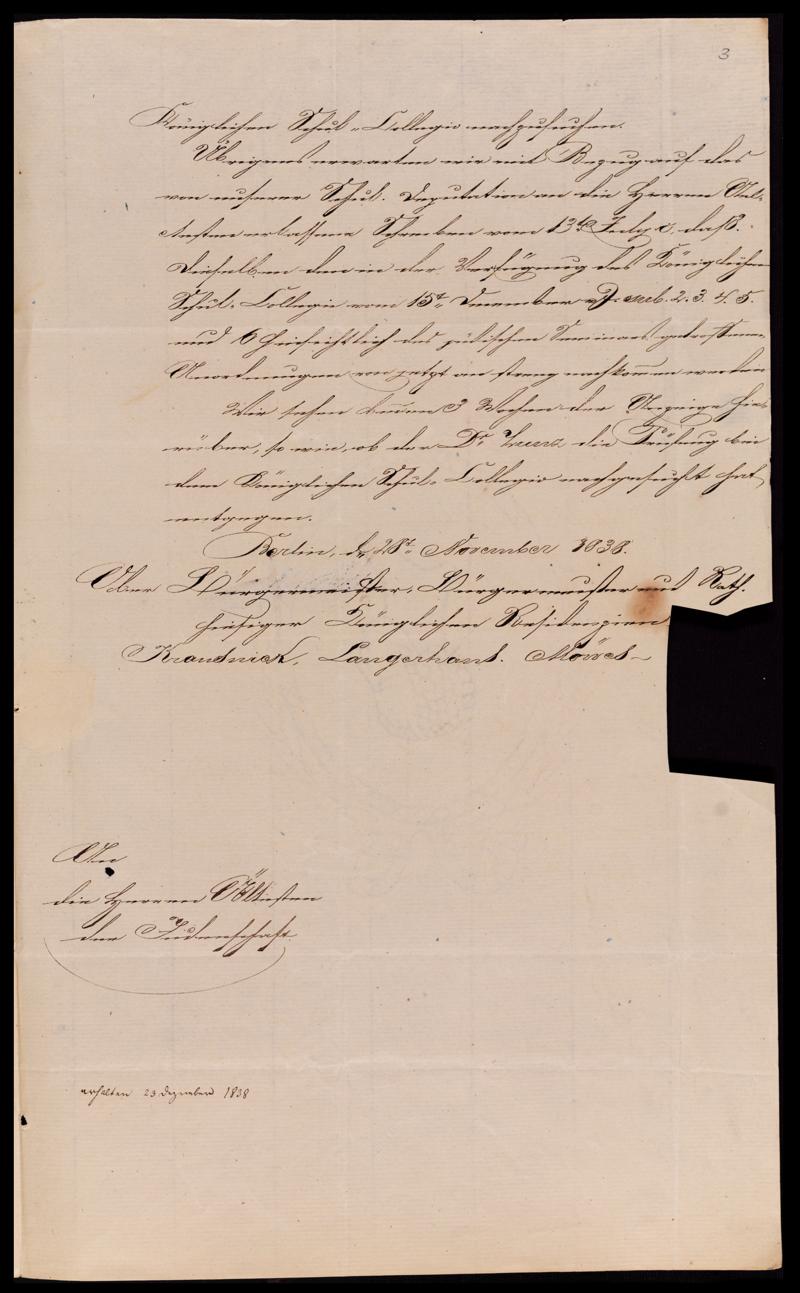 3
Königlichen Schul-Collegio nachzusuchen.
Übrigens erwarten wir mit Bezug auf das
von unserer Schul-Deputation an die Herren Ael-
testen erlassene Schreiben vom 13t July c. daß
dieselben den in der Verfügung des Königlichen
Schul-Collegii vom 15t Dezember sub. 2. 3. 4. 5.
und 6 hinsichtlich des jüdischen Seminars getroffenen
Anordnungen von jetzt an streng nachkom̄en werden
Wir sehen bin̄en 3 Wochen der Anzeige hie-
rüber, so wie, ob der Dr Zunz die Prüfung bei
dem Königlichen Schul-Collegio nachgesucht hat,
entgegen.
Berlin, d. 28t November 1838.
Ober Bürgermeister, Bürgermeister und Rath.
hiesiger Königlichen Residenzien
Krausnick, Langerhans.
An
die Herren Ältesten
der Judenschaft
erhalten 23 Dezember 1838